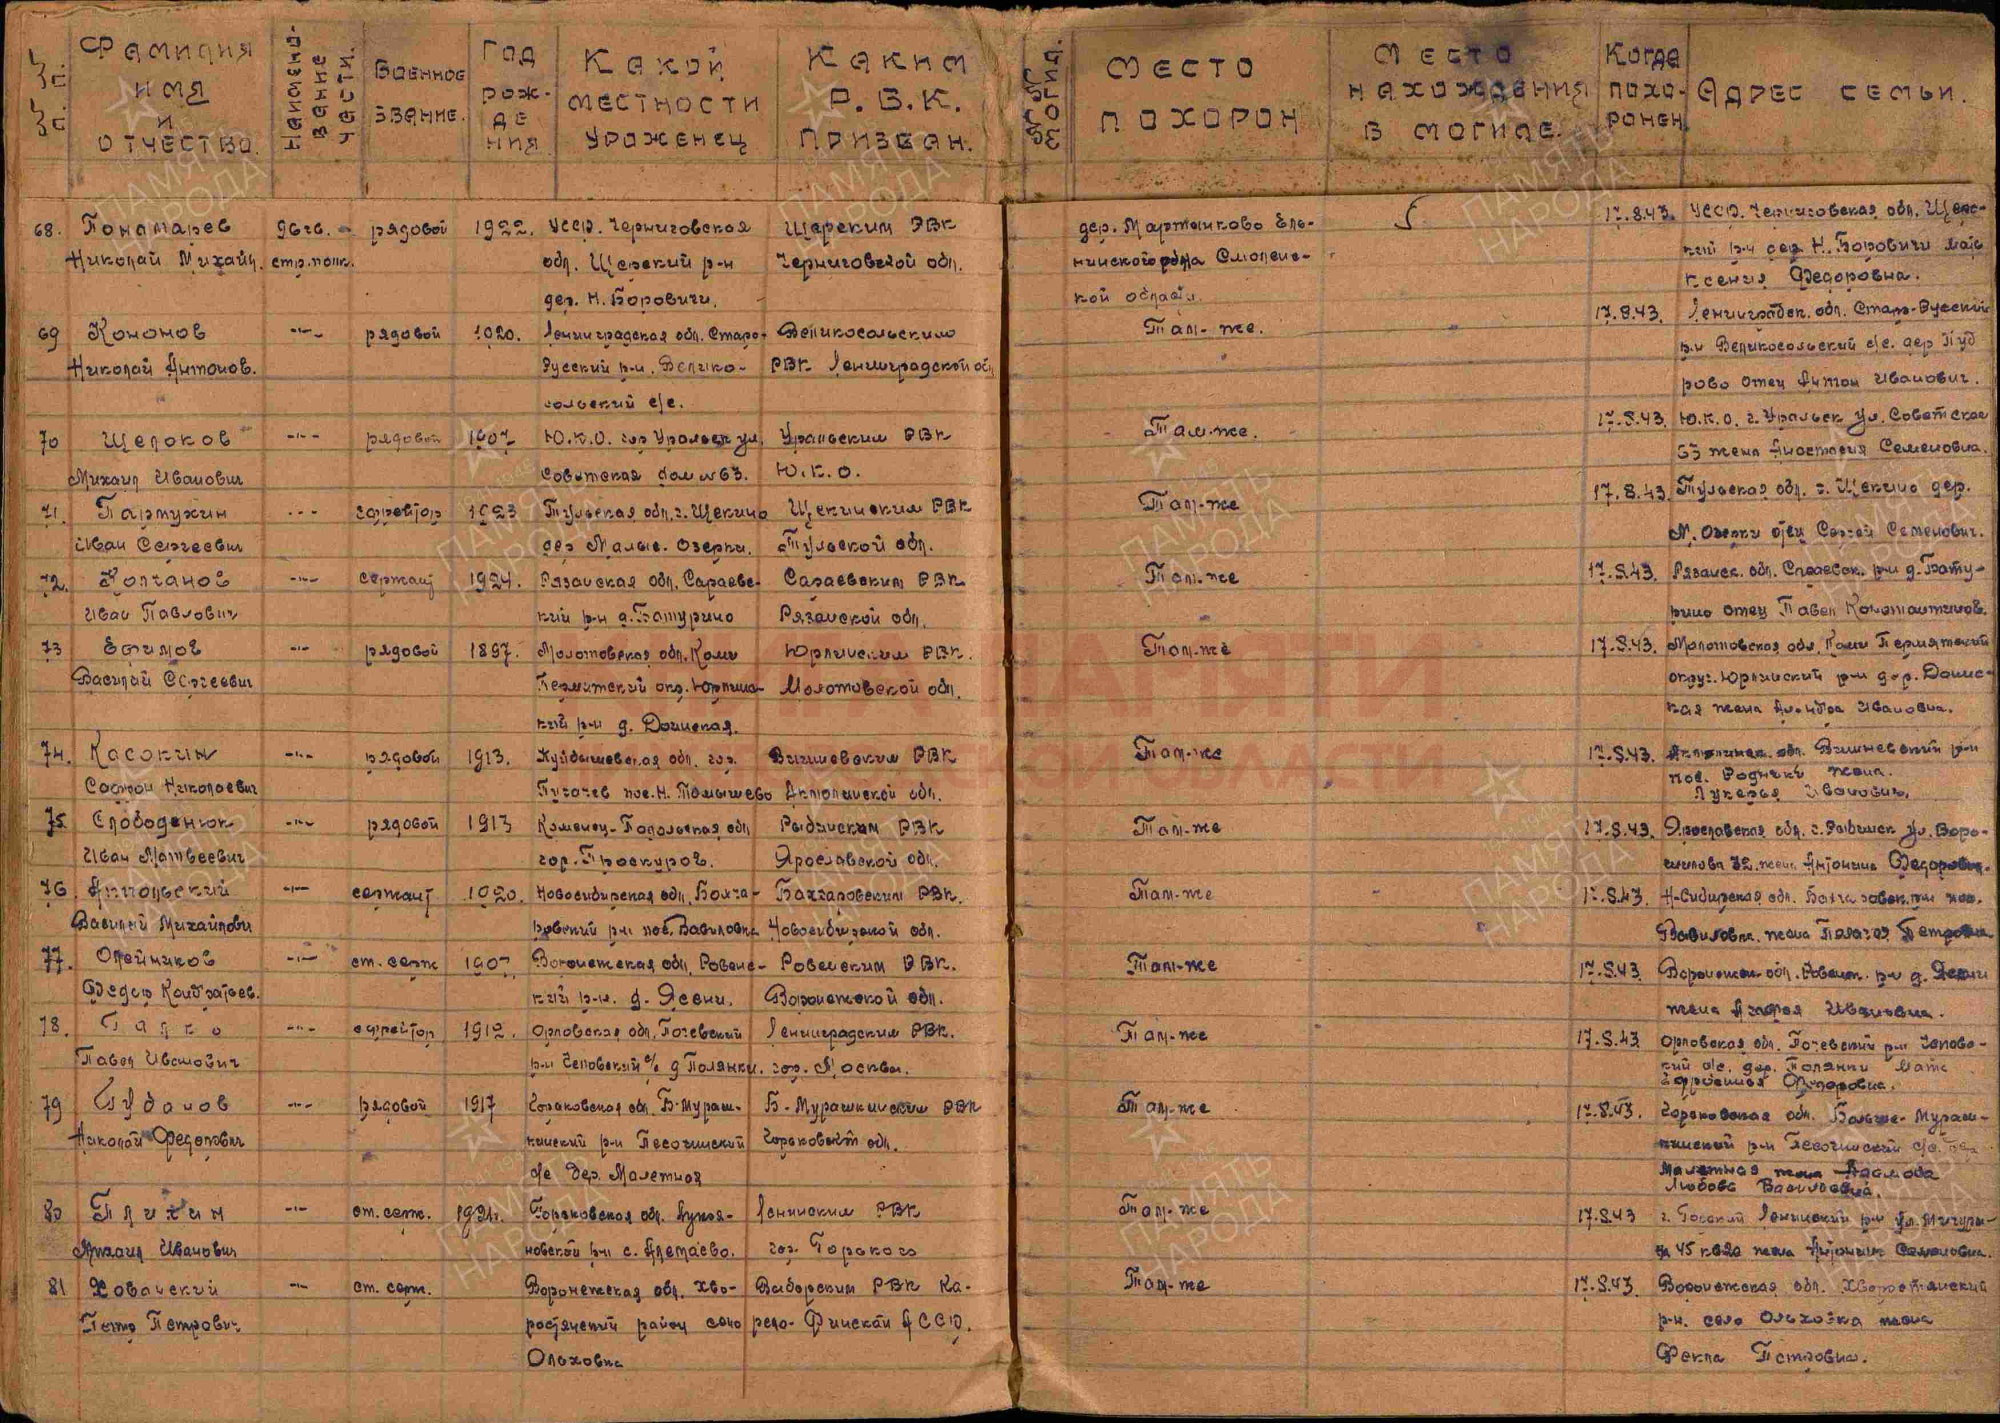 № п. п.
Фамилия
имя
и
отчество.
Наимено-
вание
части.
Военное
звание.
Год
рож-
де
ния
Какой
местности
уроженец
Каким
Р.В.К.
призван.
№№ могил.
Место
похорон
Место
нахождения
в могиле.
Когда
похо-
ронен
Адрес семьи.
68. Пономарев 96 гв. рядовой 1922. УССР. Черниговская Щорским РВК дер. Мартынково Ель- 17.8.43. УССР. Черниговская обл. Щорс-
Николай Михайл. стр. полк. обл. Щорский р-н Черниговской обл. нинского р-на Смоленс- кий р-н дер. Н. Боровичи мать
дер. Н. Боровичи. кой области. Ксения Федоровна.
69 Кононов -"- рядовой 1920. Ленинградская обл. Старо- Великосольским Там-же. 17.8.43. Ленинградск. обл. Старо-Русский
Николай Антонов. Русский р-н. Велико- РВК Ленинградской обл р-н Великосольский с/с. дер Пуд
сольский с/с. рово отец Антон Иванович.
70 Щелоков -"- рядовой 1907 Ю.К.О. гор Уральск ул. Уральским РВК Там-же. 17.8.43 Ю.К.О. г. Уральск ул. Советская
Михаил Иванович Советская дом №63. Ю.К.О. 63 жена Анастасия Семеновна.
71. Пармухин -"- ефрейтор 1923 Тульская обл. г. Щекино Щекинским РВК Там-же 17.8.43. Тульская обл. г. Щекино дер.
Иван Сергеевич дер Малые. Озерки. Тульской обл. М. Озерки отец Сергей Семенович.
72. Колчанов -"- сержант 1924. Рязанская обл. Сараевс- Сараевским РВК Там-же 17.8.43. Рязанск. обл. Сараевск. р-н д. Бату-
Иван Павлович кий р-н д. Батурино Рязанской обл. рино отец Павел Константинов.
73 Ефимов -"- рядовой 1897. Молотовская обл. Коми Юрлинским РВК. Там-же 17.8.43. Молотовская обл. Коми Пермятский
Василий Сергеевич Пермитский окр. Юрлинс- Молотовской обл. округ. Юрлинский р-н дер. Доинс-
кий р-н д. Доинская. кая жена Ивановна.
74. Касокин -"- рядовой 1913. Куйбышевская обл. гор. Вишневским РВК Там-же 17.8.43. обл. Вишневский р-н
Софрон Николаевич Пугачев пос. Н. Томышево Актюлинской обл. пос. Родники жена.
Лукерья Иванович.
75 Слободенюк -"- рядовой 1913 Каменец-Подольская обл Рыбинским РВК Там-же 17.8.43. Ярославская обл. г. Рыбинск ул. Воро-
Иван Матвеевич гор. Проскуров. Ярославской обл. шилова 32. жена Антонина Федоровна.
76. -"- сержант 1920. Новосибирская обл. Болта- РВК. Там-же 17.8.43. Н-Сибирская обл. р-н пос.
Василий Михайлович ровский р-н пос. Вавиловка Новосибирской обл. Вавиловка. жена Пелагея Петровна
77. Олейников -"- ст. серж 1907 Воронежская обл. Ровенс- Ровенским РВК. Там-же 17.8.43 Воронежск. обл. Ровенск. р-н д. Ясени
Федор Кондратьев. кий р-н. д. Ясени. Воронежской обл. жена Агафья Ивановна.
78. -"- ефрейтор 1912. Орловская обл. Почевский Ленинградским РВК. Там-же 17.8.43 Орловская обл. Почевский р-н Чопово-
Павел Иванович р-н Чеповский с/с д Полянки. гор. Москвы. кий с/с. дер. Полянки мать
Ефросинья Федоровна.
79 Буданов -"- рядовой 1917 Горьковская обл. Б-Мураш- Б-Мурашкинским РВК Там-же 17.8.43. Горьковская обл. Больше-Мураш-
Николай Федорович кинский р-н Песочинский Горьковской обл. кинский р-н Песочинский с/с. дер
с/с дер. Малетная Малетная жена
Любовь Васильевна.
80 Пличин -"- ст. серж. 1921. Горьковская обл. Лукоя- Ленинским РВК Там-же 17.8.43 г. Горький Ленинский р-н ул. Мичури-
Михаил Иванович новский р-н с. гор. Горького на 45 кв 20 жена Антонина Семеновна.
81 Хованский -"- ст. серж. Воронежская обл. Хво- Выборским РВК Ка- Там-же 17.8.43 Воронежская обл.
Петр Петрович ростянский район село рело-Финской АССР. р-н. село Ольховка жена
Ольховка Фекла Петровна.
ПАМЯТЬ НАРОДА